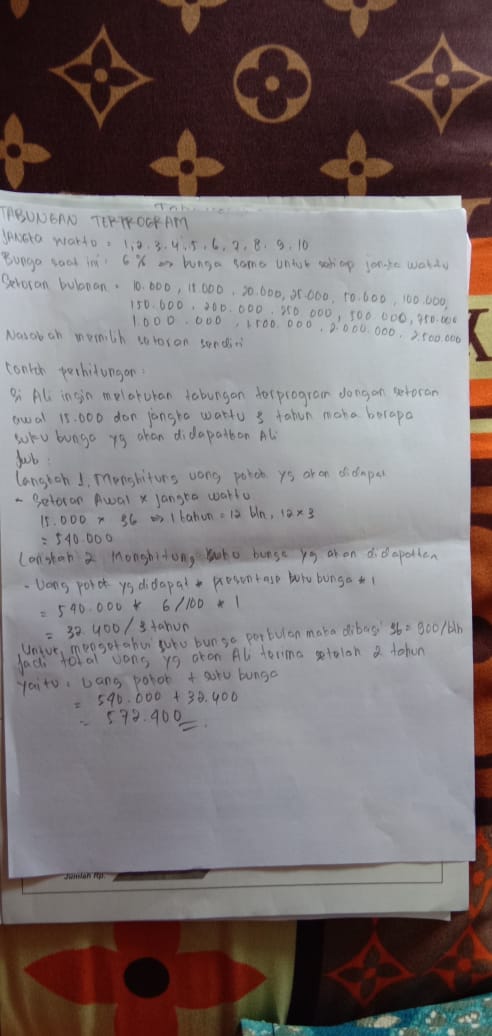 TABUNGAN TERPROGRAM
Jangka waktu = 1, 2, 3, 4, 5, 6, 7, 8, 9, 10
Bunga saat ini : 6% => bunga sama untuk setiap jangka waktu
Setoran bulanan = 10.000, 15.000, 20.000, 25.000, 50.000, 100.000,
150.000, 200.000, 250.000, 500.000, 750.000
1.000.000, 1.500.000, 2.000.000, 2.500.000
Nasabah memilih setoran sendiri
Contoh perhitungan :
Si Ali ingin melakukan tabungan terprogram dengan setoran
awal 15.000 dan jangka waktu 3 tahun maka berapa
suku bunga yg akan didapatkan Ali
Jwb :
Langkah 1, Menghitung uang pokok yg akan didapat
- Setoran Awal x jangka waktu
15.000 x 36 => 1 tahun = 12 bln, 12 x 3
= 540.000
Langkah 2 Menghitung suku bunga yg akan didapatkan
- Uang pokok yg didapat * presentase suku bunga * 1
= 540.000 * 6/100 * 1
= 32.400/3 tahun
Untuk mengetahui suku bunga perbulan maka dibagi 36 = 900/bln
Jadi total uang yg akan Ali terima setelah 2 tahun
yaitu : Uang pokok + suku bunga
= 540.000 + 32.400
= 572.400
Jumlah Rp.